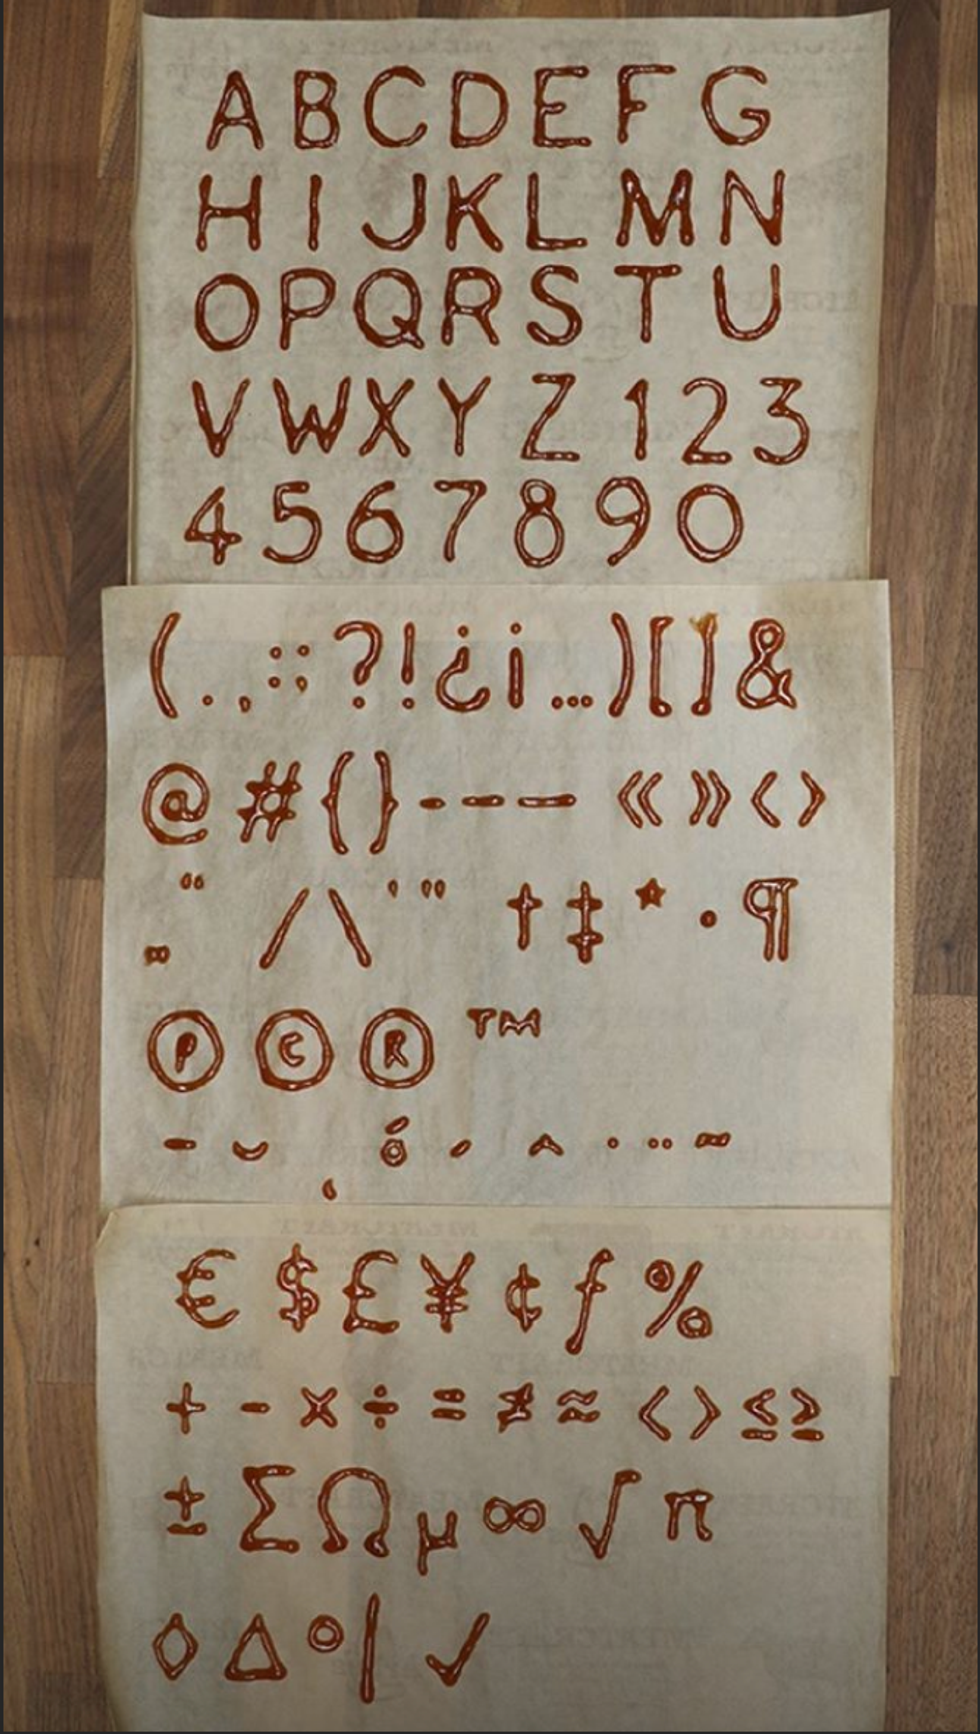 A B C D E F G
H I J K L M N
O P Q R S T U
V W X Y Z 1 2 3
4 5 6 7 8 9 0
( . , : ; ? ! ¿ ¡ … ) [ ] &
@ # { } - – — « » ‹ ›
„ “ / \ ' " † ‡ * · ¶
℗ © ® ™
¯ ˘ ¸ ó ´ ˆ ˙ ¨ ˜
€ $ £ ¥ ¢ ƒ %
+ − × ÷ = ≠ ≈ < > ≤ ≥
± Σ Ω µ ∞ √ π
◊ ∆ ° | ✓